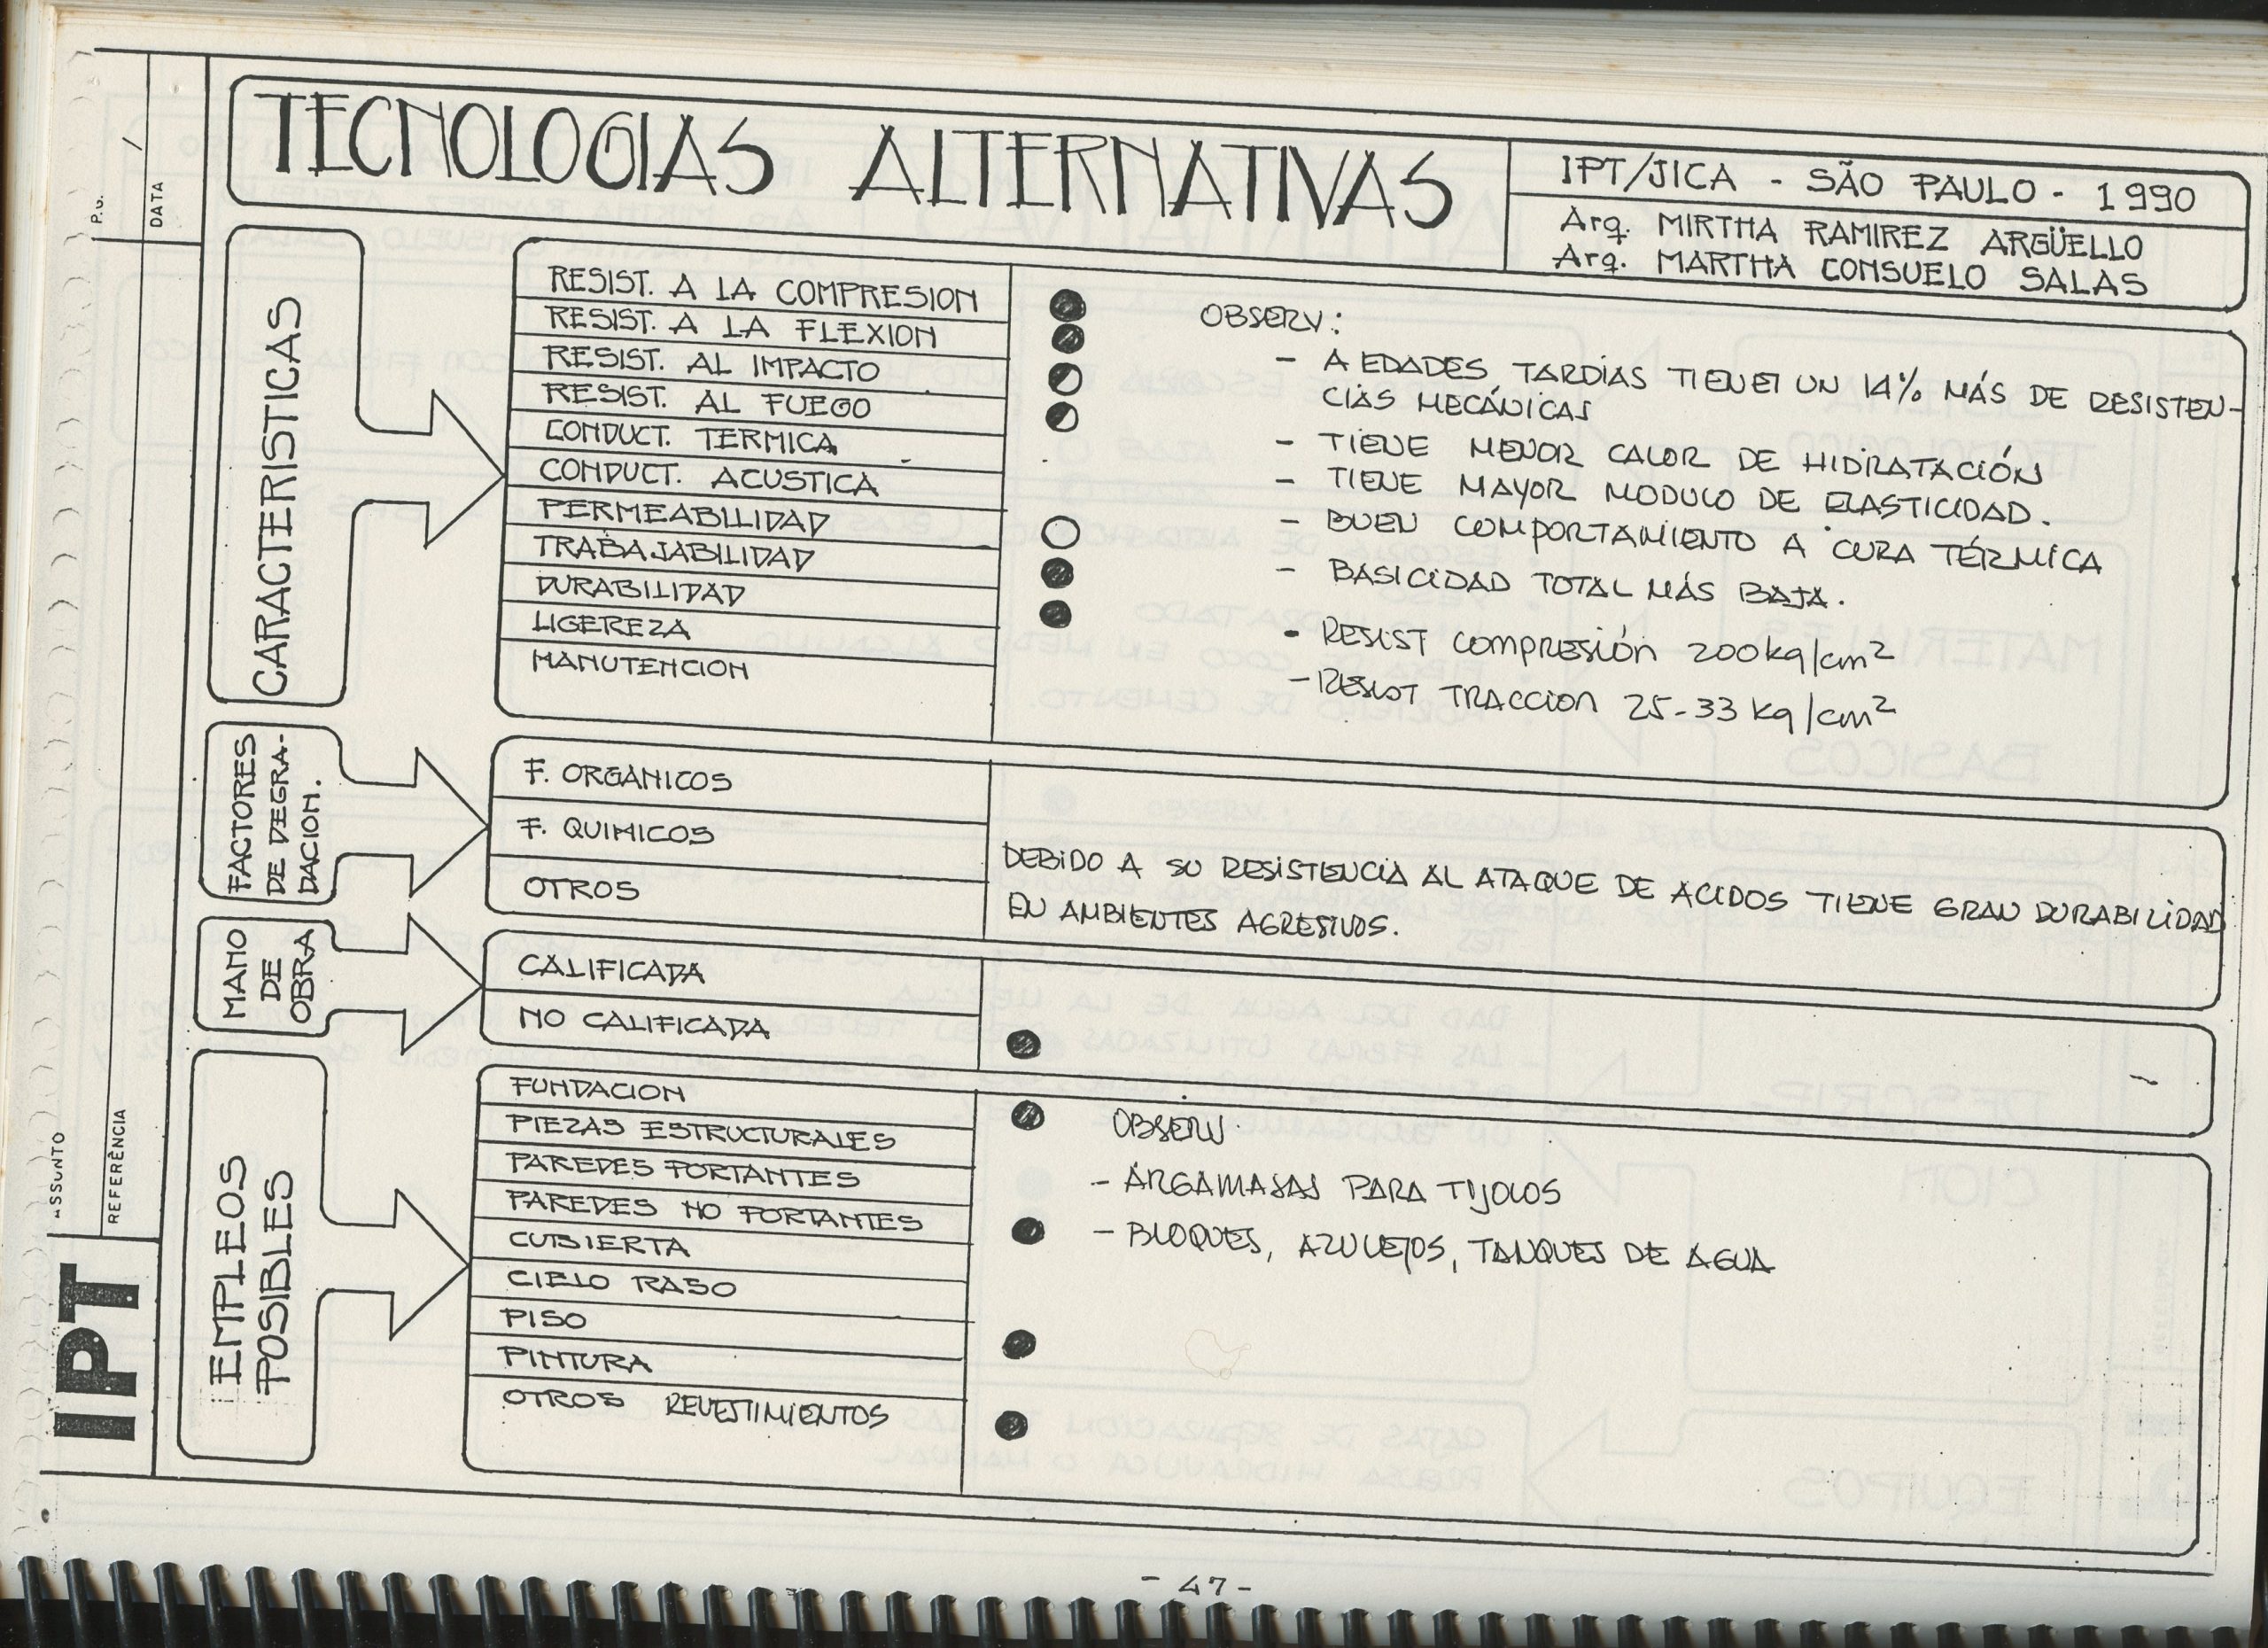 TECNOLOGIAS ALTERNATIVAS
IPT/JICA - SÃO PAULO - 1990
Arq. MIRTHA RAMIREZ ARGÜELLO
Arq. MARTHA CONSUELO SALAS
P.G.
DATA
/
ASSUNTO
REFERÊNCIA
IPT
CARACTERISTICAS
RESIST. A LA COMPRESION
RESIST. A LA FLEXION
RESIST. AL IMPACTO
RESIST. AL FUEGO
CONDUCT. TERMICA
CONDUCT. ACUSTICA
PERMEABILIDAD
TRABAJABILIDAD
DURABILIDAD
LIGEREZA
MANUTENCION
OBSERV:
- A EDADES TARDÍAS TIENEN UN 14% MÁS DE RESISTEN-
CIAS MECÁNICAS
- TIENE MENOR CALOR DE HIDRATACIÓN
- TIENE MAYOR MODULO DE ELASTICIDAD.
- BUEN COMPORTAMIENTO A CURA TÉRMICA
- BASICIDAD TOTAL MÁS BAJA.
- RESIST COMPRESIÓN 200 kg/cm²
- RESIST TRACCION 25-33 kg/cm²
FACTORES
DE DEGRA-
DACION.
F. ORGANICOS
F. QUIMICOS
OTROS
DEBIDO A SU RESISTENCIA AL ATAQUE DE ACIDOS TIENE GRAN DURABILIDAD
EN AMBIENTES AGRESIVOS.
MANO
DE
OBRA
CALIFICADA
NO CALIFICADA
EMPLEOS
POSIBLES
FUNDACION
PIEZAS ESTRUCTURALES
PAREDES PORTANTES
PAREDES NO PORTANTES
CUBIERTA
CIELO RASO
PISO
PINTURA
OTROS REVESTIMIENTOS
OBSERV.
- ARGAMASAS PARA TIJOLOS
- BLOQUES, AZULEJOS, TANQUES DE AGUA
- 47 -